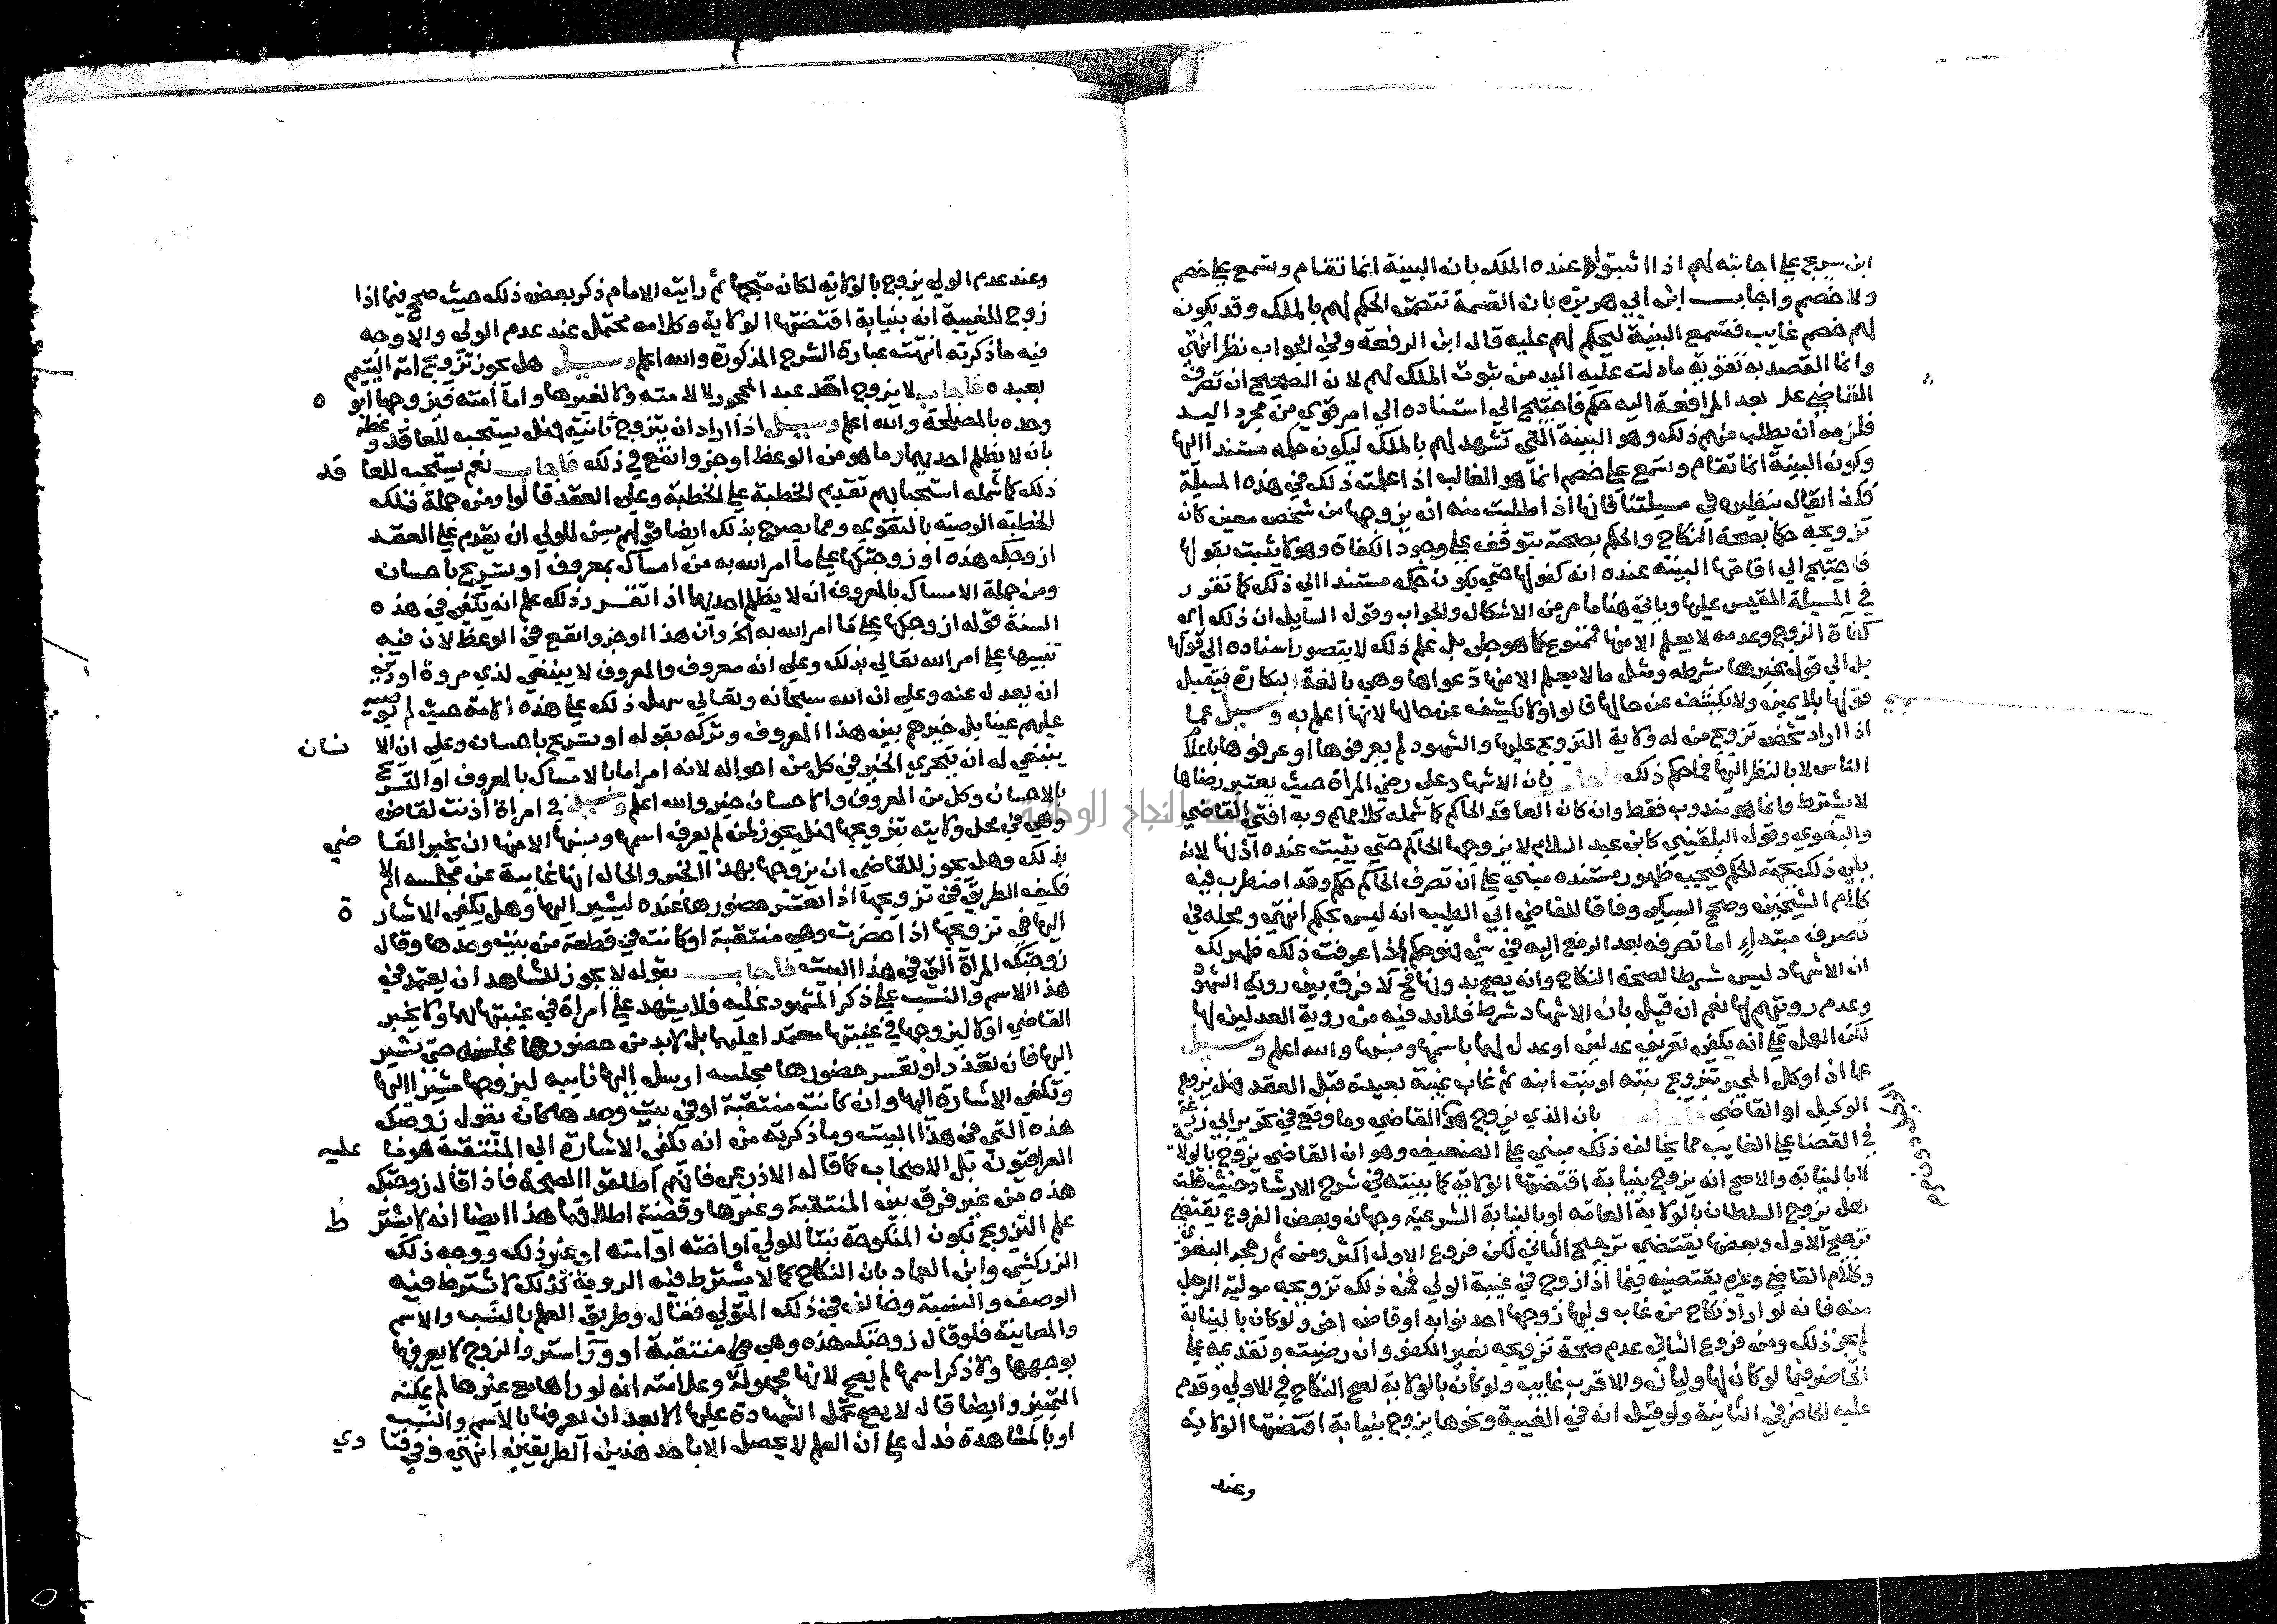 ابن سريج على اجابته لهم اذا اثبتوا عنده الملك بان البينة انما تقام وتسمع على خصم
ولا خصم واجاب ابن ابي هريرة بان القسمة تتضمن الحكم لهم بالملك وقد يكون
لهم خصم غايب فتسمع البينة ليحكم لهم عليه قال ابن الرفعة وفي الجواب نظر انتهى
وانما القصد به تقوية ما دلت عليه اليد من ثبوت الملك لهم لان الصحيح ان تصرف
القاضي بعد المرافعة اليه حكم فاحتيج الى استناده الى امر قوي من مجرد اليد
فلزمه ان يطلب منهم ذلك وهو البينة التي تشهد لهم بالملك ليكون حكمه مستندا اليها
وكون البينة انما تقام وتسمع على خصم انما هو الغالب اذا علمت ذلك في هذه المسيلة
فكذا يقال بنظيره في مسيلتنا فانها اذا طلبت منه ان يزوجها من شخص معين كان
تزويجه حكما بصحة النكاح والحكم بصحته يتوقف على وجود الكفاة وهو لا يثبت بقولها
فاحتيج الى اقامتها البينة عنده انه كفولها حتى يكون حكمه مستندا الى ذلك كما تقرر
في المسيلة المقيس عليها وياتي هنا ما مر من الاشكال والجواب وقول السايل ان ذلك اي
كفاة الزوج وعدمه لا يعلم الا منها فممنوع كما هو جلي بل علم ذلك لا يتصور اسناده الى قولها
بل الى قول غيرها بشرطه ومثل ما لا يعلم الا منها دعواها وهي بالغة البكارة فيقبل
قولها بلا يمين ولا يكشف عن حالها قالوا ولا تكشفه عن حالها لانها اعلم به وسيل عما
اذا اراد شخص تزوج من له ولاية التزويج عليها والشهود لم يعرفوها او عرفوها باعلام
الناس لا بالنظر اليها فما حكم ذلك فاجاب بان الاشهاد على رضى المراة حيث يعتبر رضاها
لا يشترط وانما هو مندوب فقط وان كان العاقد الحاكم كما شمله كلامهم وبه افتى القاضي
والبغوي وقول البلقيني كابن عبد السلام لا يزوجها الحاكم حتى يثبت عنده اذنها لانه
يلي ذلك بجهة الحكم فيجب ظهور مستنده مبني على ان تصرف الحاكم حكم وقد اضطرب فيه
كلام الشيخين وصحح السبكي وفاقا للقاضي ابي الطيب انه ليس بحكم انتهى ومحله في
تصرف مبتدا اما تصرفه بعد الرفع اليه في شي فهو حكم اذا عرفت ذلك ظهر لك
ان الاشهاد ليس شرطا لصحة النكاح وانه يصح بدونها فح لا فرق بين روية الشهود
وعدم رويتهم لها نعم ان قيل بان الاشهاد شرط فلابد فيه من روية العدلين لها
لكن العمل على انه يكفي تعريف عدلين او عدل لها باسمها ونسبها والله اعلم وسيل
عما اذا وكل المجبر بتزويج بنته او بنت ابنه ثم غاب غيبة بعيدة قبل العقد فهل يزوج
الوكيل او القاضي فاجاب بان الذي يزوج هو القاضي وما وقع في تحرير ابي زرعة
في القضا على الغايب مما يخالف ذلك مبني على الضعيف وهو ان القاضي يزوج بالولاية
لا بالنيابة والاصح انه يزوج بنيابة اقتضتها الولاية كما بينته في شرح الارشاد حيث قلت
هل يزوج السلطان بالولاية العامة او بالنيابة الشرعية وجهان وبعض الفروع يقتضي
ترجيح الاول وبعضها يقتضي ترجيح الثاني لكن فروع الاول اكثر ومن ثم رجحه البغوي
وكلام القاضي وغيره يقتضيه فيما اذا زوج في غيبة الولي فمن ذلك تزويجه مولية الرجل
منه فانه لو اراد نكاح من غاب وليها زوجها احد نوابه او قاض اخر ولو كان بالنيابة
لم يجز ذلك ومن فروع الثاني عدم صحة تزويجه بغير الكفو وان رضيت وتقديمه على
الحاضر فيما لو كان لها وليان والاقرب غايب ولو كان بالولاية لصح النكاح في الاولى وقدم
عليه الحاضر في الثانية ولو قيل انه في الغيبة ونحوها يزوج بنيابة اقتضتها الولاية
وعند
وعند عدم الولي يزوج بالولاية لكان متجها ثم رايت الامام ذكر بعض ذلك حيث صحح فيما اذا
زوج للغيبة انه بنيابة اقتضتها الولاية وكلامه محتمل عند عدم الولي والاوجه
فيه ما ذكرته انتهت عبارة الشرح المذكورة والله اعلم وسيل هل يجوز تزويج امة اليتيم
بعبده فاجاب لا يزوج احد عبد المحجور لا لامته ولا لغيرها واما امته فيزوجها ابو
وجده بالمصلحة والله اعلم وسيل اذا اراد ان يتزوج ثانية فهل يستحب للعاقد وعظه
بان لا يظلم احديهما وما هو من الوعظ اوجز وانفع في ذلك فاجاب نعم يستحب للعاقد
ذلك كما شمله استحبابهم تقديم الخطبة على الخطبة وعلى العقد قالوا ومن جملة تلك
الخطبة الوصية بالتقوى ومما يصرح بذلك ايضا قولهم يسن للولي ان يقدم على العقد
ازوجك هذه او زوجتكها على ما امر الله به من امساك بمعروف او تسريح باحسان
ومن جملة الامساك بالمعروف ان لا يظلم احديهما اذا تقرر ذلك علم انه يكفي في هذه
السنة قوله ازوجكها على ما امر الله به الخ وان هذا اوجز وانفع في الوعظ لان فيه
تنبيها على امر الله تعالى بذلك وعلى انه معروف والمعروف لا ينبغي لذي مروة او دين
ان يعدل عنه وعلى ان الله سبحانه وتعالى سهل ذلك على هذه الامة حيث لم يوجبه
عليهم عينا بل خيرهم بين هذا المعروف وتركه بقوله او تسريح باحسان وعلى ان الانسان
ينبغي له ان يتحرى الخير في كل من احواله لانه امر اما بالامساك بالمعروف او التسريح
بالاحسان وكل من المعروف والاحسان خير والله اعلم وسيل في امراة اذنت لقاض
وهي في محل ولايته بتزويجها فهل يجوز لمن لم يعرف اسمها ونسبها الا منها ان يخبر القاضي
بذلك وهل يجوز للقاضي ان يزوجها بهذا الخبر والحال انها غايبة عن مجلسه ام لا
فكيف الطريق في تزويجها اذا تعسر حضورها عنده ليشير اليها وهل يكفي الاشارة
اليها في تزويجها اذا حضرت وهي منتقبة او كانت في قطعة من بيت وحدها وقال
زوجتك المراة التي في هذا البيت فاجاب بقوله لا يجوز للشاهد ان يعتمد في
هذا الاسم والنسب على ذكر المشهود عليه فلا يشهد على امراة في غيبتها لها ولا يخبر
القاضي اولا ليزوجها في غيبتها معتمدا عليها بل لابد من حضورها مجلسه حتى يشير
اليها فان تعذر او تعسر حضورها مجلسه ارسل اليها نايبه ليزوجها مشيرا اليها
وتكفي الاشارة اليها وان كانت منتقبة او في بيت وحدها كان يقول زوجتك
هذه التي في هذا البيت وما ذكرته من انه تكفي الاشارة الى المنتقبة هو ما عليه
العراقيون بل الاصحاب كما قاله الاذرعي فانهم اطلقوا الصحة فاذا قال زوجتك
هذه من غير فرق بين المنتقبة وغيرها وقضية اطلاقها هذا ايضا انه لا يشترط
علم التزويج بكون المنكوحة بنتا للولي او اخته او امته او غير ذلك ووجه ذلك
الزركشي وابن العماد بان النكاح كما لا يشترط فيه الروية كذلك لا تشترط فيه
الوصف والنسبة وخالف في ذلك المتولي فقال وطريق العلم بالنسب والاسم
والمعاينة فلو قال زوجتك هذه وهي منتقبة او ورا ستر والزوج لا يعرفها
بوجهها ولا ذكر اسمها لم يصح لانها مجهولة وعلامته انه لو راها مع غيرها لم يمكنه
التمييز وايضا قال لا يصح تحمل الشهادة عليها الا بعد ان يعرفها بالاسم والنسب
او بالمشاهدة فدل على ان العلم لا يحصل الا باحد هذين الطريقين انتهى وفي فتاوي
جامعة النجاح الوطنية